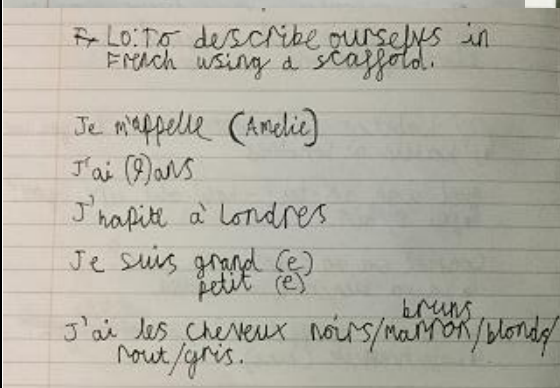 F LO: To describe ourselfs in
French using a scaffold.
Je m'appelle (Amelie)
J'ai (9) ans
J'hapite à Londres
Je suis grand (e)
petit (e)
bruns
J'ai les cheveux noirs/marron/blonds/
rout/gris.